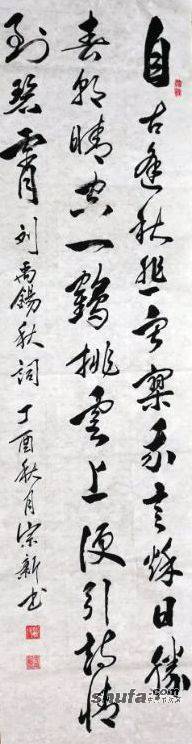 自古逢秋悲寂寥我言秋日勝
春朝晴空一鶴排雲上便引詩情
到碧霄 刘禹錫秋詞 丁酉秋月宗新书
shufa.com